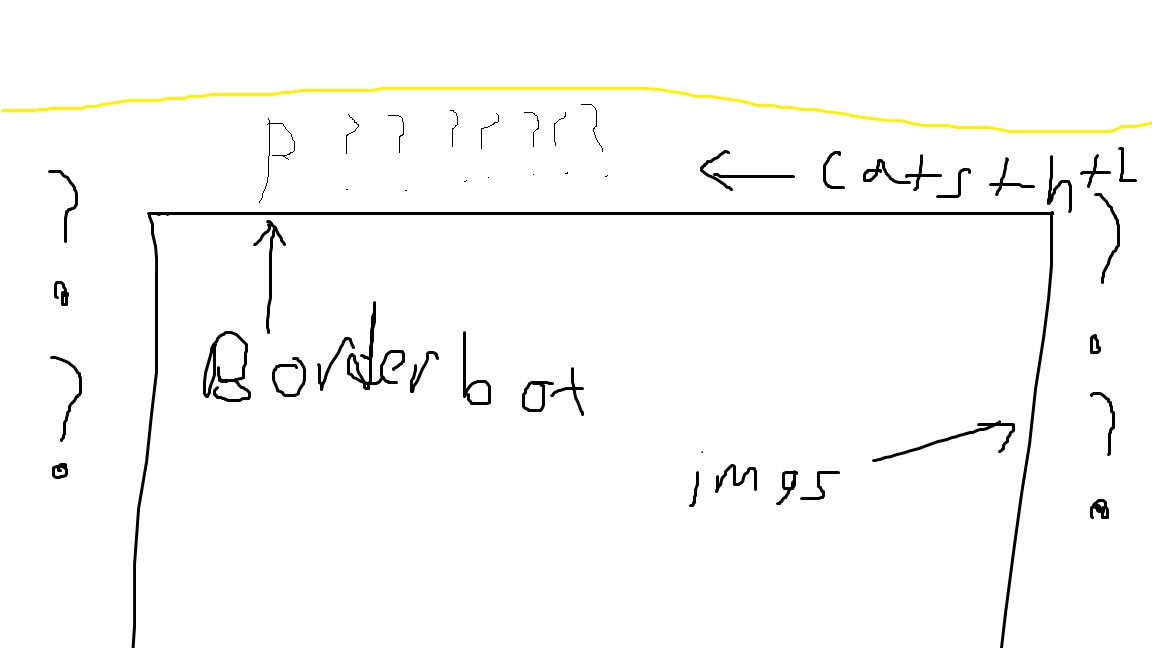 P ? ? ? ? ? ? ?
← Cats th +L
? ?
? ?
Border bot
imgs